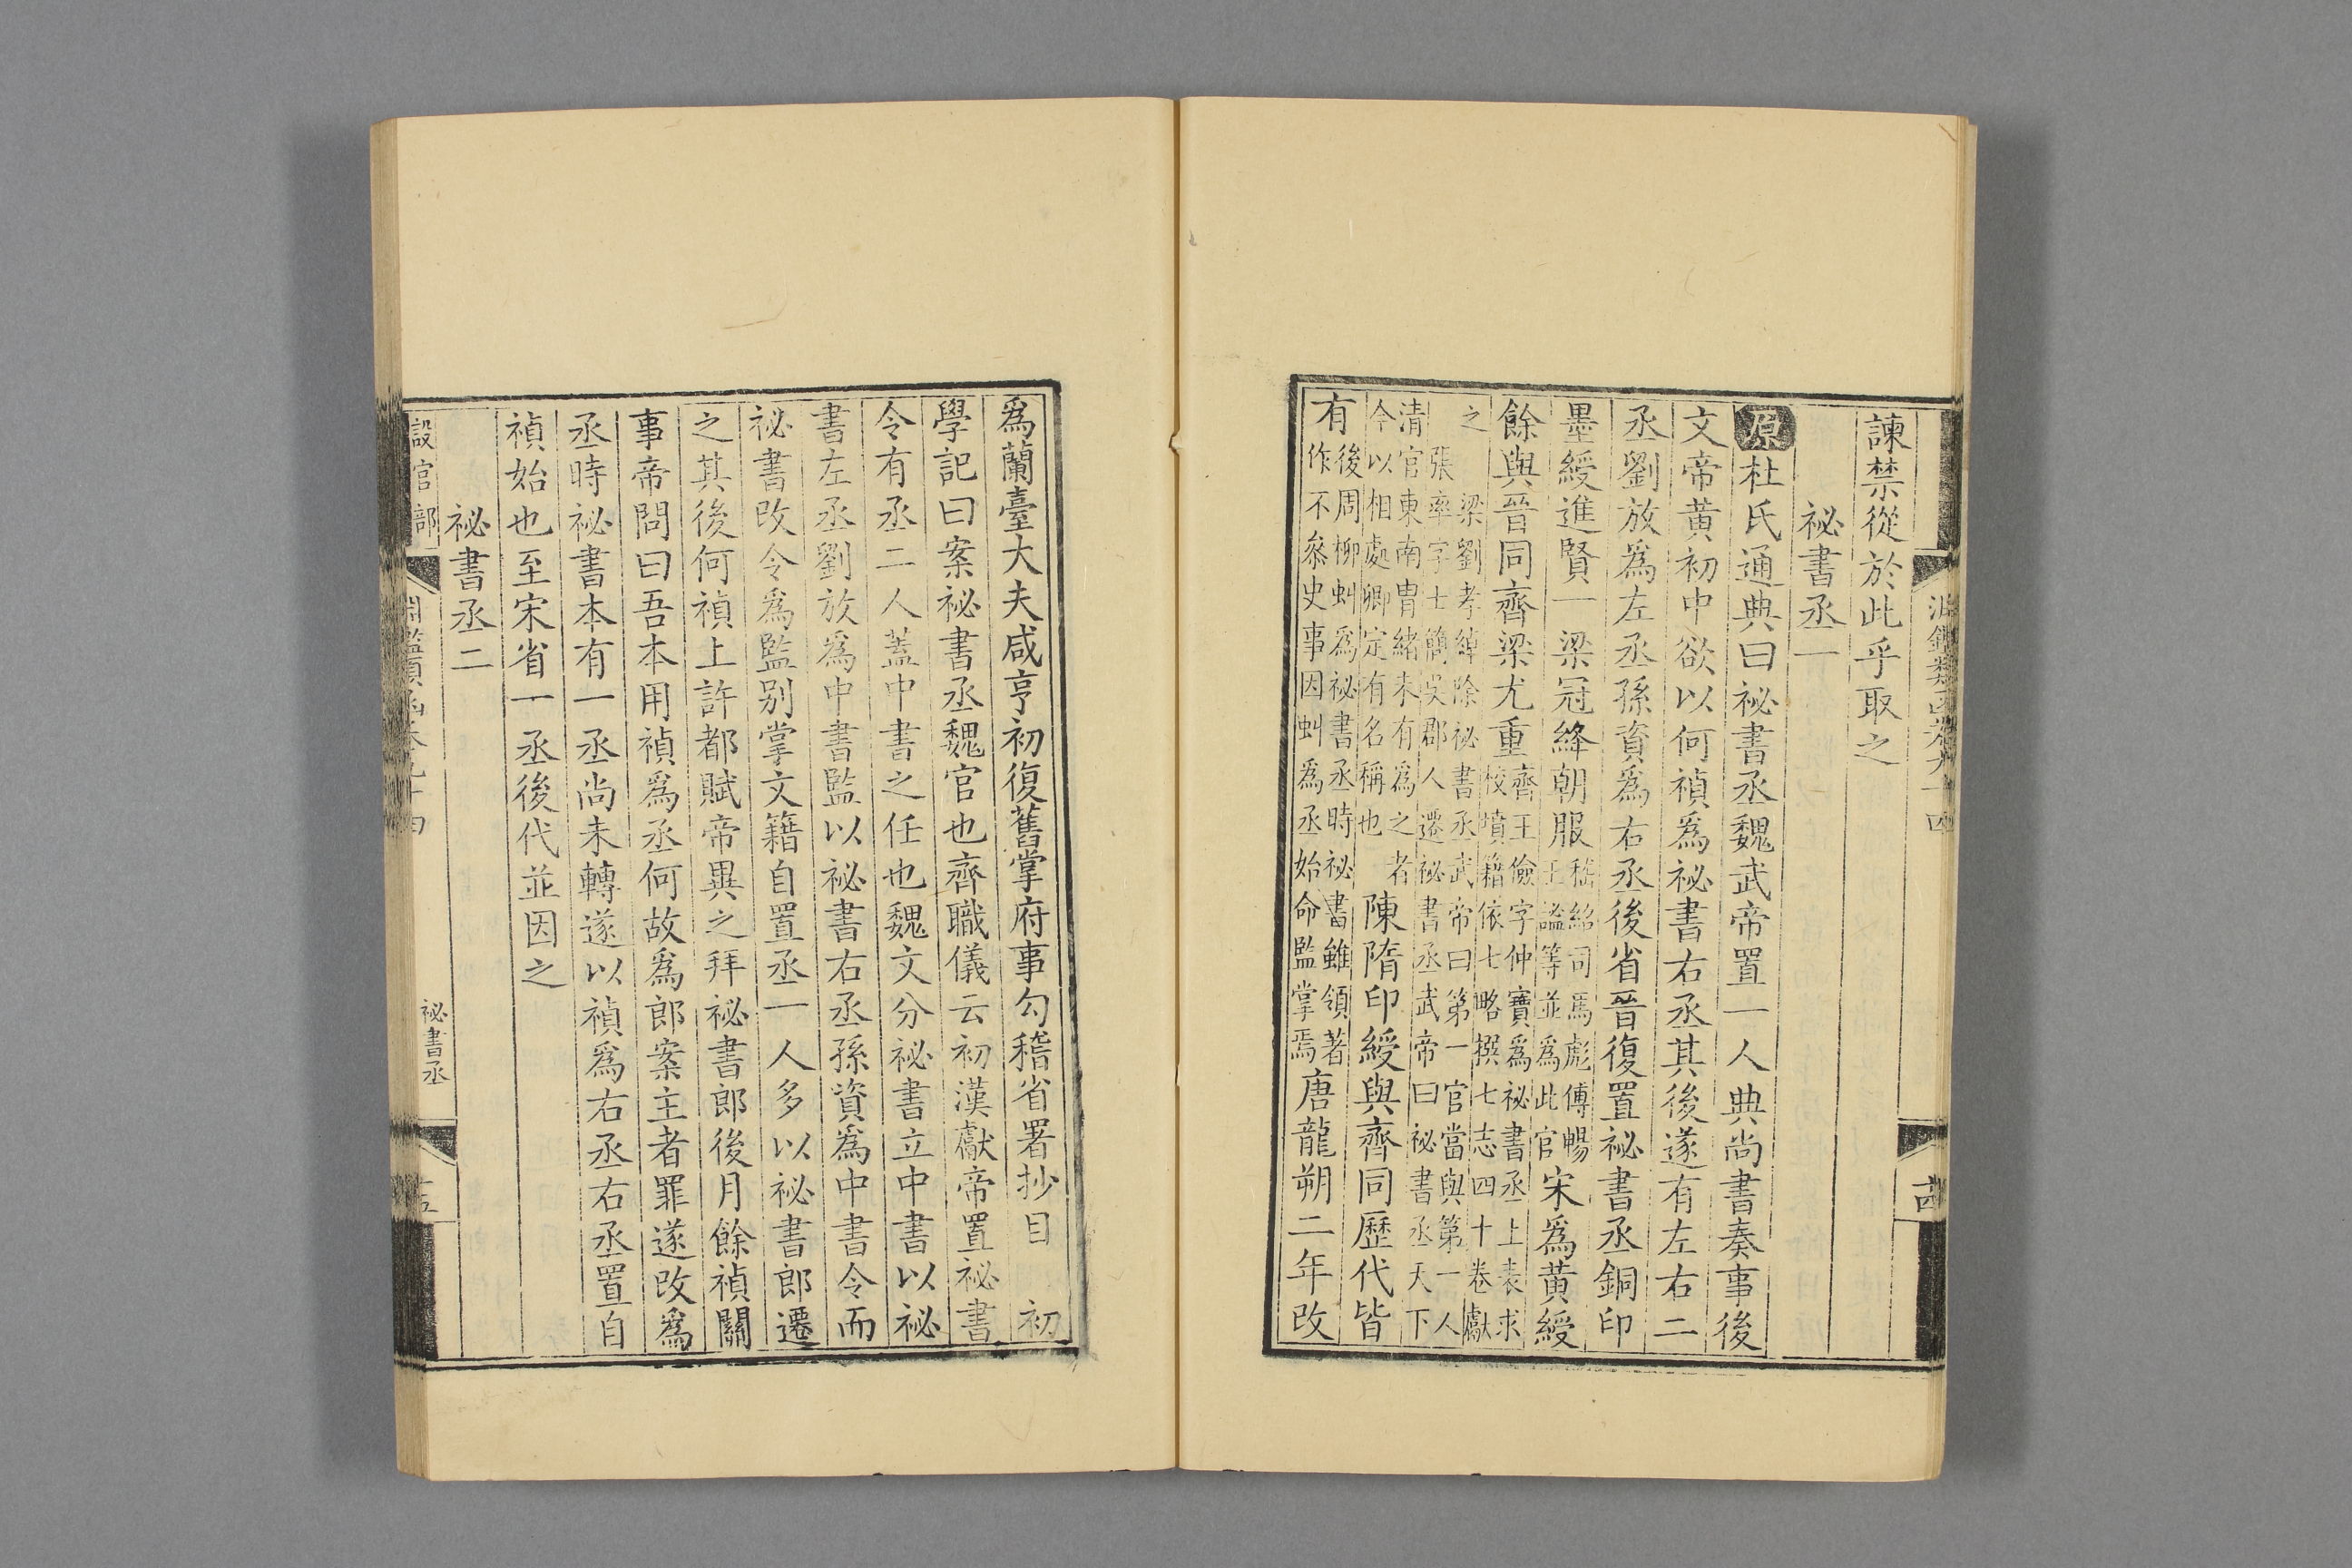 淵鑑類函卷九十四
十四
諫禁從於此乎取之
祕書丞一
原杜氏通典曰祕書丞魏武帝置一人典尚書奏事後
文帝黄初中欲以何禎爲祕書右丞其後遂有左右二
丞劉放爲左丞孫資爲右丞後省晉復置祕書丞銅印
墨綬進賢一梁冠絳朝服嵇紹司馬彪傅暢王謐等並爲此官宋爲黄綬
餘與晉同齊梁尤重齊王儉字仲寶爲祕書丞上表求校墳籍依七略撰七志四十卷獻
之梁劉孝綽除祕書丞武帝曰第一官當與第一人張率字士簡吳郡人遷祕書丞武帝曰祕書丞天下
清官東南冑緒未有爲之者今以相處卿定有名稱也陳隋印綬與齊同歷代皆
有後周柳虯爲祕書丞時祕書雖領著作不叅史事因虯爲丞始命監掌焉唐龍朔二年改
爲蘭臺大夫咸亨初復舊掌府事勾稽省署抄目 初
學記曰案祕書丞魏官也齊職儀云初漢獻帝置祕書
令有丞二人蓋中書之任也魏文分祕書立中書以祕
書左丞劉放爲中書監以祕書右丞孫資爲中書令而
祕書改令爲監别掌文籍自置丞一人多以祕書郎遷
之其後何禎上許都賦帝異之拜祕書郎後月餘禎關
事帝問曰吾本用禎爲丞何故爲郎案主者罪遂改爲
丞時祕書本有一丞尚未轉遂以禎爲右丞右丞置自
禎始也至宋省一丞後代並因之
祕書丞二
設官部
淵鑑類函卷九十四
祕書丞
十五